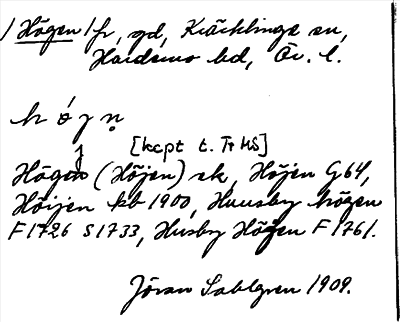 /Högen/ fr, gd, Kräcklinge sn,
Hardemo hd, Ör. l.
h ó j n̥
[kcpt t. Tr HS]
Högen (Höjen) sk, Höjen G64,
Höijen kb 1900, Huusby högen
F 1726 S 1733, Husby Högen F 1761.
Jöran Sahlgren 1909.